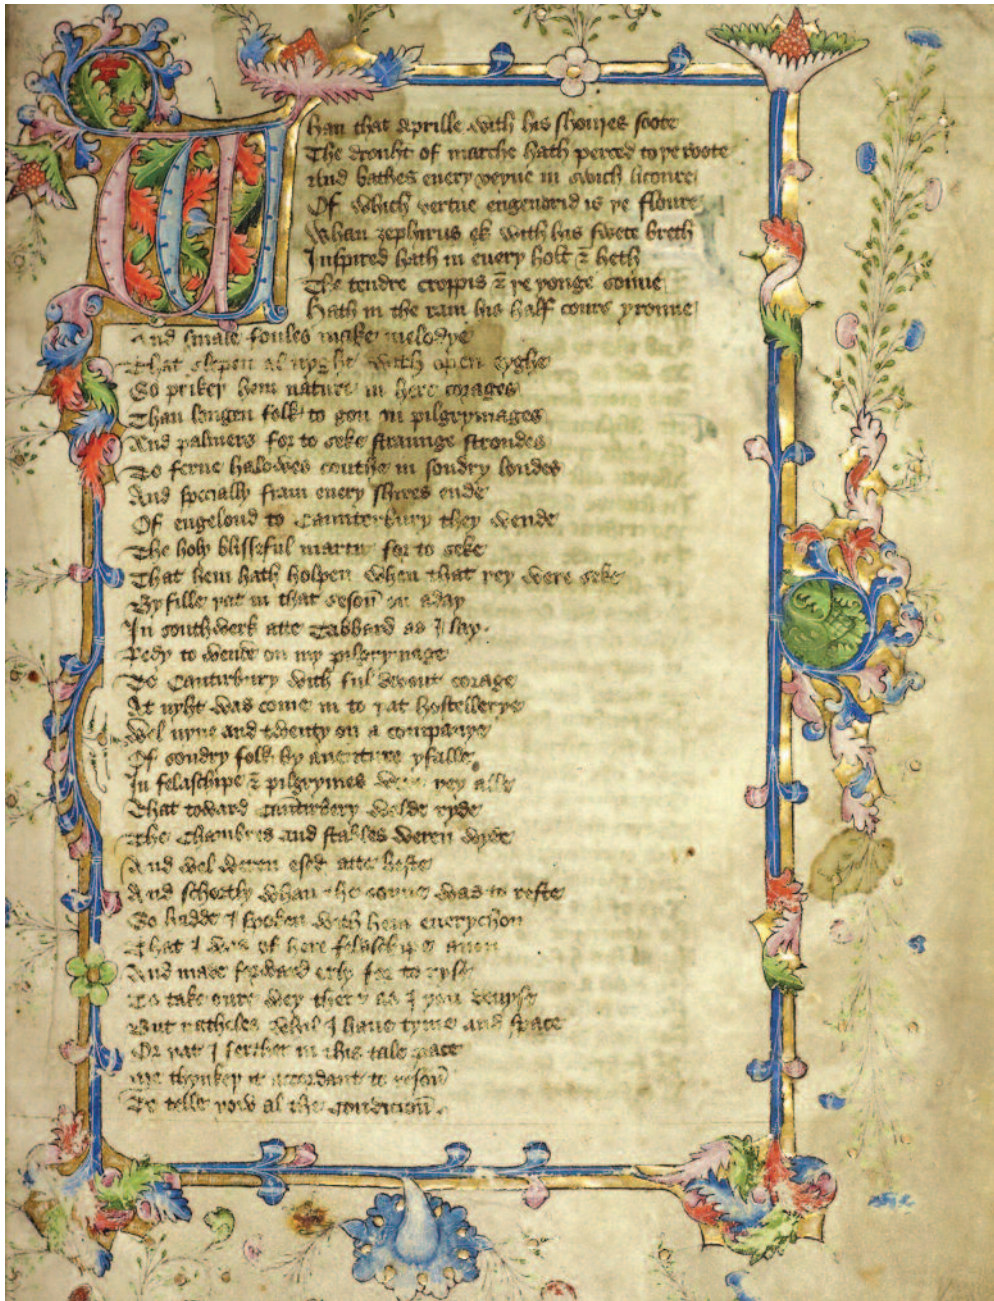 Whan that Aprille with his shoures soote
The drouht of marche hath perced to þe roote
And bathes euery veyne in swich licoure
Of which vertue engendrid is þe floure
Whan zephirus ek with his swete breth
Inspired hath in euery holt & heth
The tendre croppis & þe yonge sonne
Hath in the ram his half cours yronne
And smale foules make melodye
That slepen al nyght with open eyghe
So prikeþ hem nature in here corages
Than longen folk to gon in pilgrymages
And palmers for to seke straunge strondes
To ferne halowes couthe in sondry londes
And specially fram euery shires ende
Of engelond to Caunterbury they wende
The holy blissful martir for to seke
That hem hath holpen when that þey were seke
Byfille þat in that seson on a day
In southwerk atte Tabbard as I lay
Redy to wende on my pilgrymage
To Canturbury with ful deuout corage
At nyht was come in to þat hostellerye
Wel nyne and twenty on a companye
Of sondry folk by auenture yfalle
In felaschipe & pilgrymes were þey alle
That toward Canturbery wolde ryde
The Chambres and stables weren wyde
And wel weren esed atte beste
And schortly whan the sonne was to reste
So hadde I spoken with hem euerychon
That I was of here felaschipe anon
And made forward erly for to ryse
To take oure wey ther as I you deuyse
But natheles whil I haue tyme and space
Or þat I ferther in this tale pace
Me thynkeþ it accordant to reson
To telle yow al the condicion